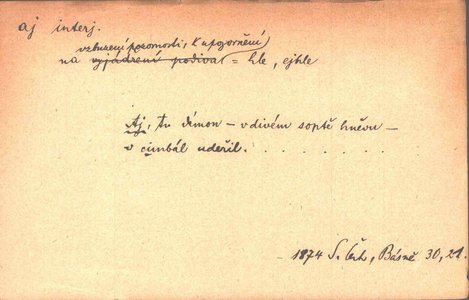 aj interj.
vzbuzení pozornosti, k upozornění
na vyjádření podivu = hle, ejhle
Aj, tu démon – v divém soptě hněvu –
v cimbál udeřil. . . . . . . . . .
1874 S. Čech, Básně 30, 21.